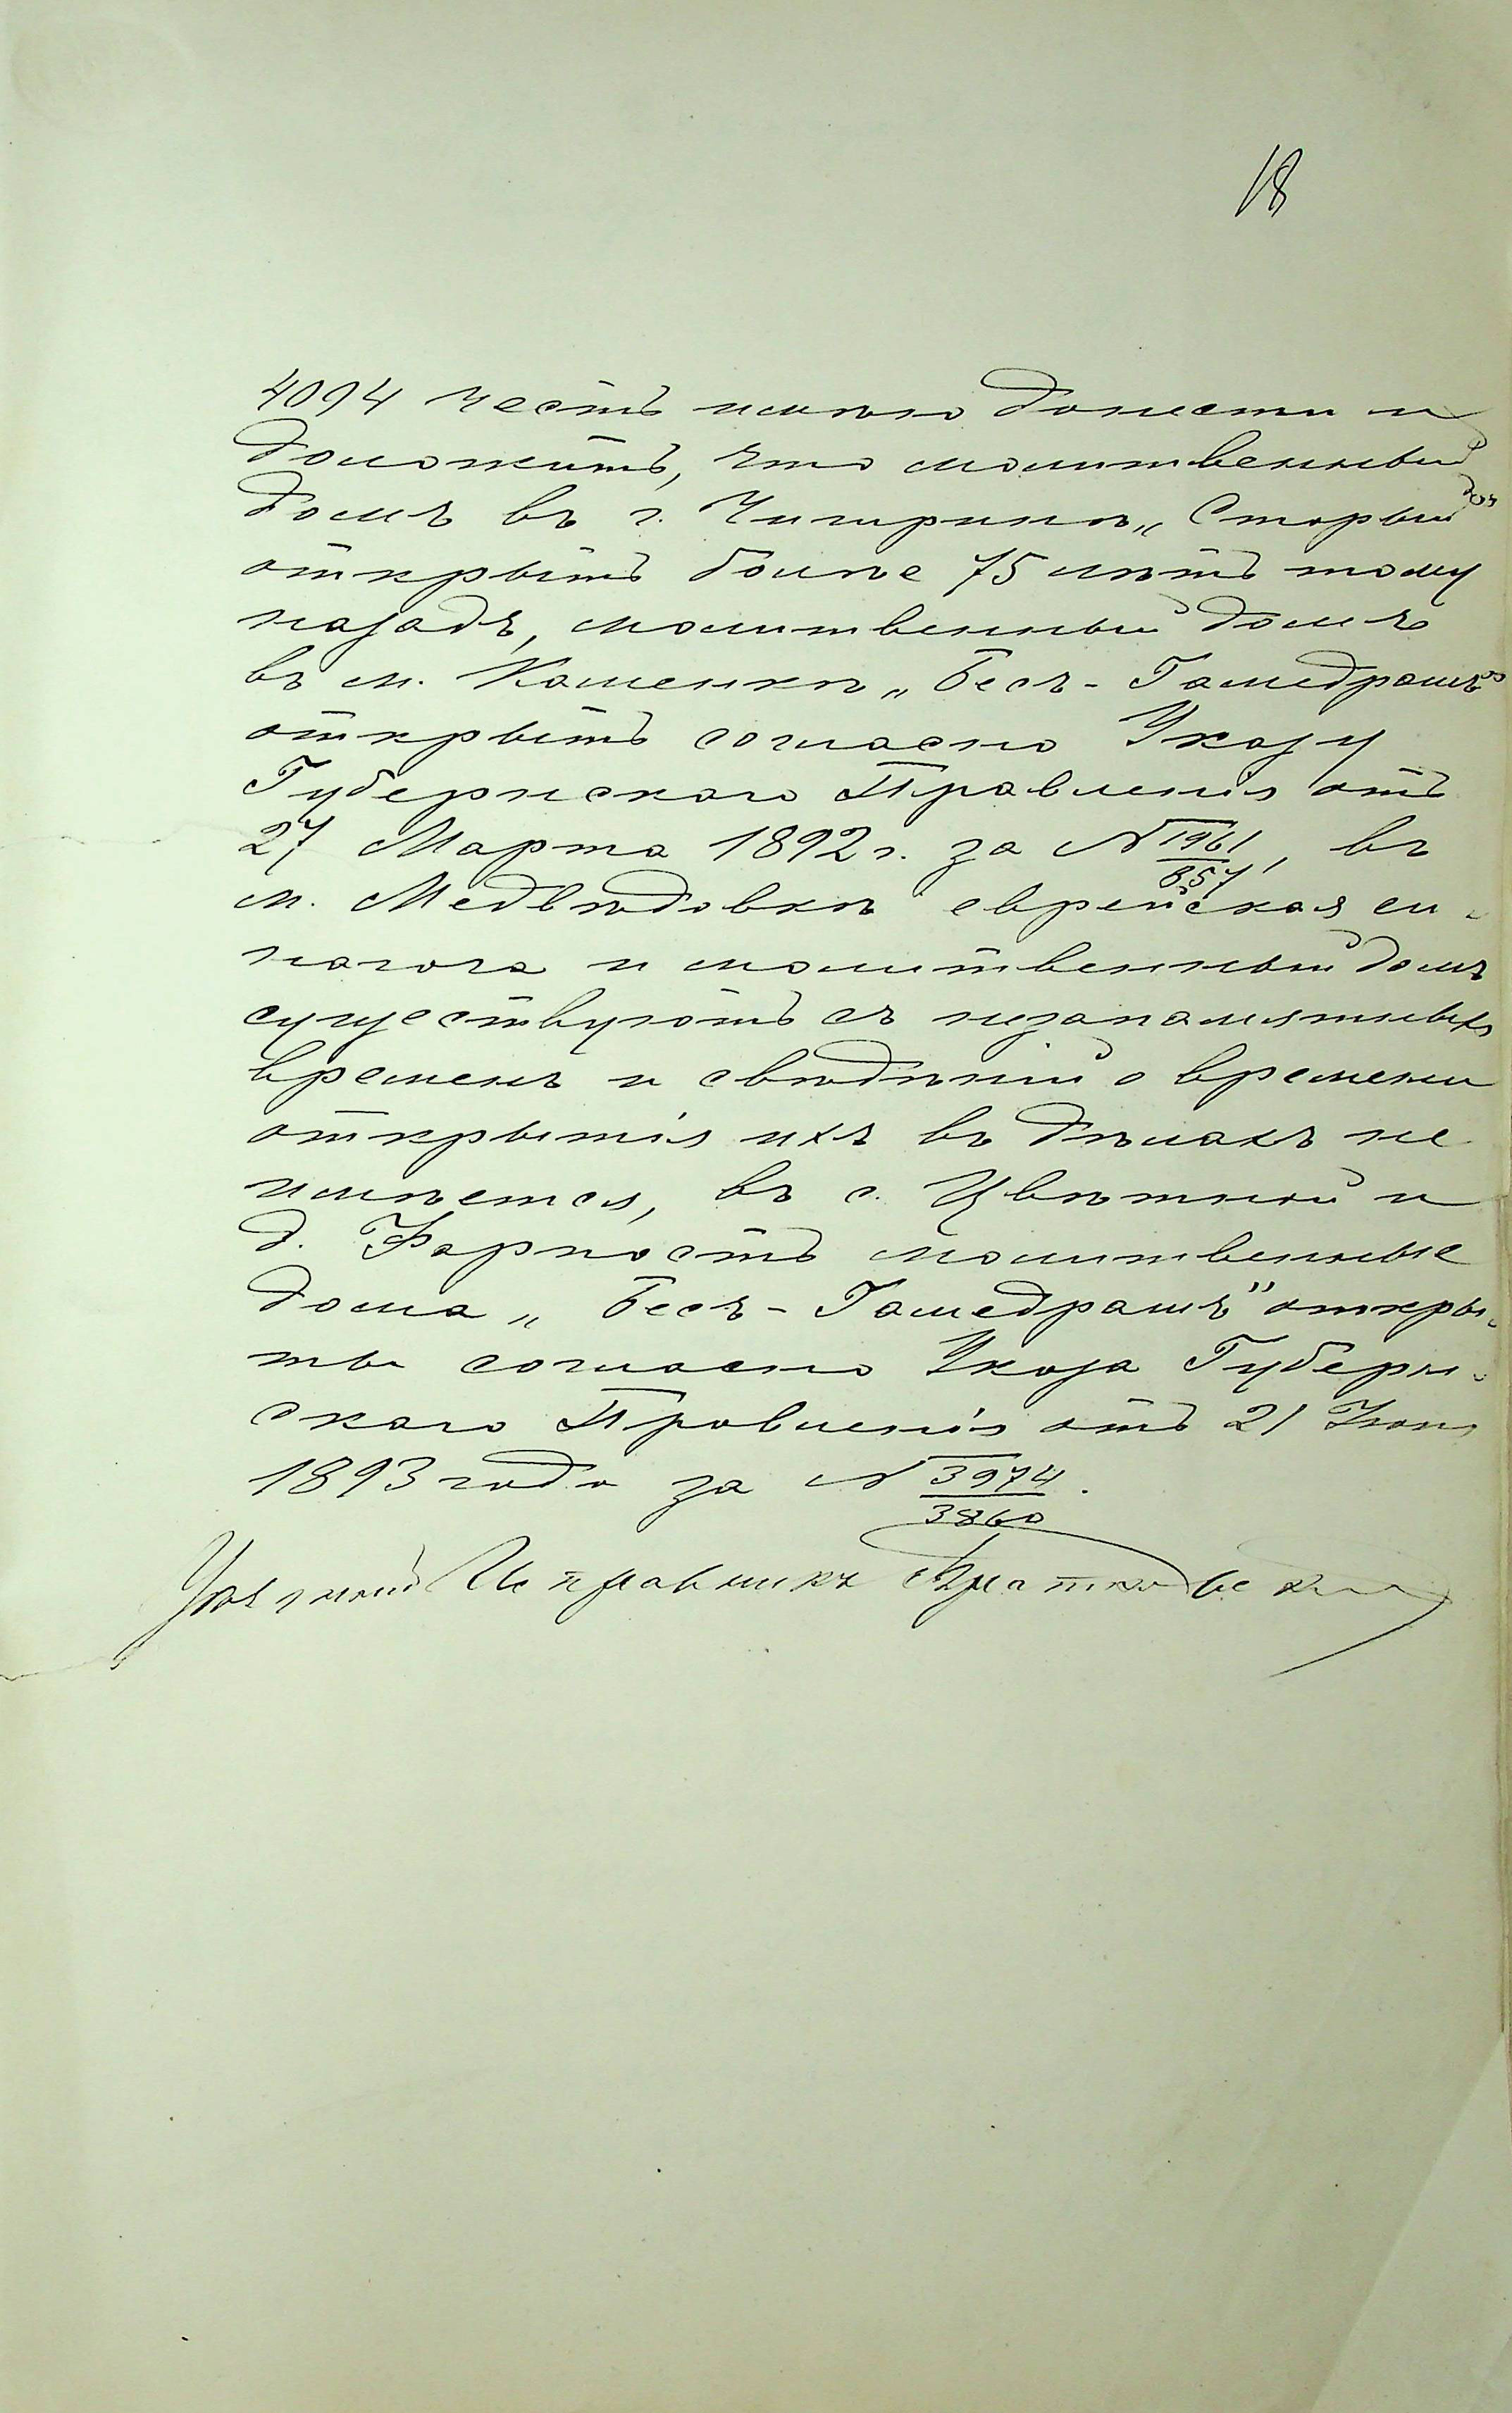 18
4094 честь имѣю донести и
доложить, что молитвенный
домъ въ г. Чигиринѣ „Старый"
открытъ болѣе 75 лѣтъ тому
назадъ, молитвенный домъ
въ м. Каменкѣ „Бесъ-Гамедрашъ"
открытъ согласно Указу
Губернскаго Правленія отъ
27 Марта 1892 г. за № 1961/857, въ
м. Медвѣдовкѣ еврейская си-
нагога и молитвенный домъ
существуютъ съ незапамятныхъ
временъ и свѣдѣній о времени
открытія ихъ въ дѣлахъ не
имѣется, въ с. Цвѣтной и
д. Форпостъ молитвенные
дома „Бесъ-Гамедрашъ" откры-
ты согласно Указа Губерн-
скаго Правленія отъ 21 Іюня
1893 года за № 3974/3860.
Уѣздный Исправникъ